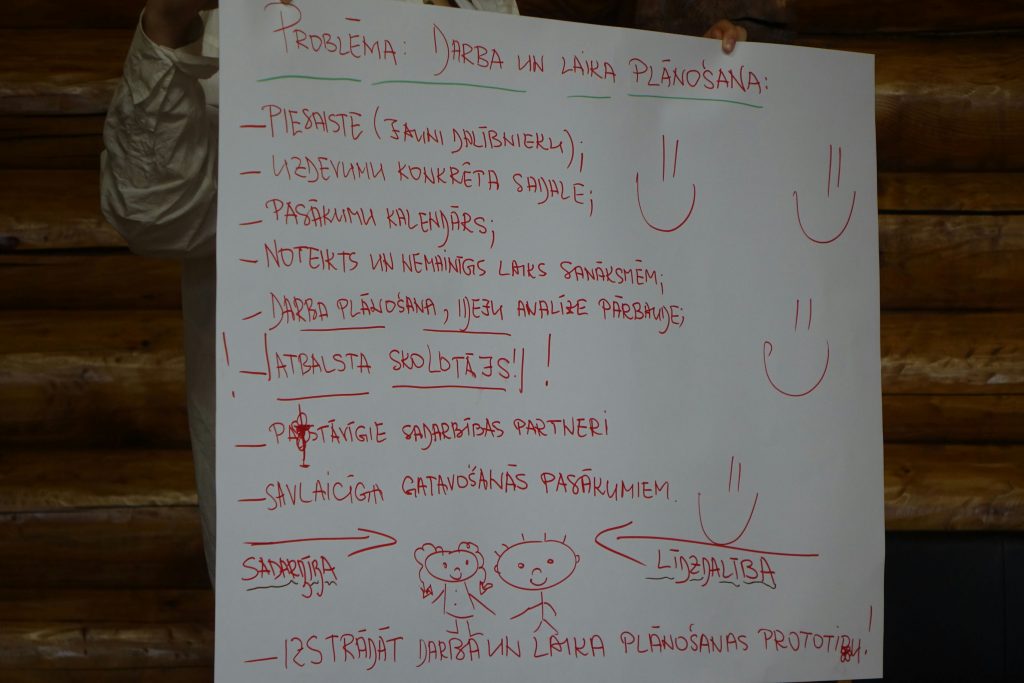 PROBLĒMA: DARBA UN LAIKA PLĀNOŠANA:
– PIESAISTE (JAUNI DALĪBNIEKU);
– UZDEVUMU KONKRĒTA SADALE;
– PASĀKUMU KALENDĀRS;
– NOTEIKTS UN NEMAINĪGS LAIKS SANĀKSMĒM;
– DARBA PLĀNOŠANA, IDEJU ANALĪZE PĀRBAUDE;
! – ATBALSTA SKOLOTĀJS! !
– PASTĀVĪGIE SADARBĪBAS PARTNERI
– SAVLAICĪGA GATAVOŠANĀS PASĀKUMIEM.
SADARBĪBA LĪDZDALĪBA
– IZSTRĀDĀT DARBĀ UN LAIKA PLĀNOŠANAS PROTOTIPU!